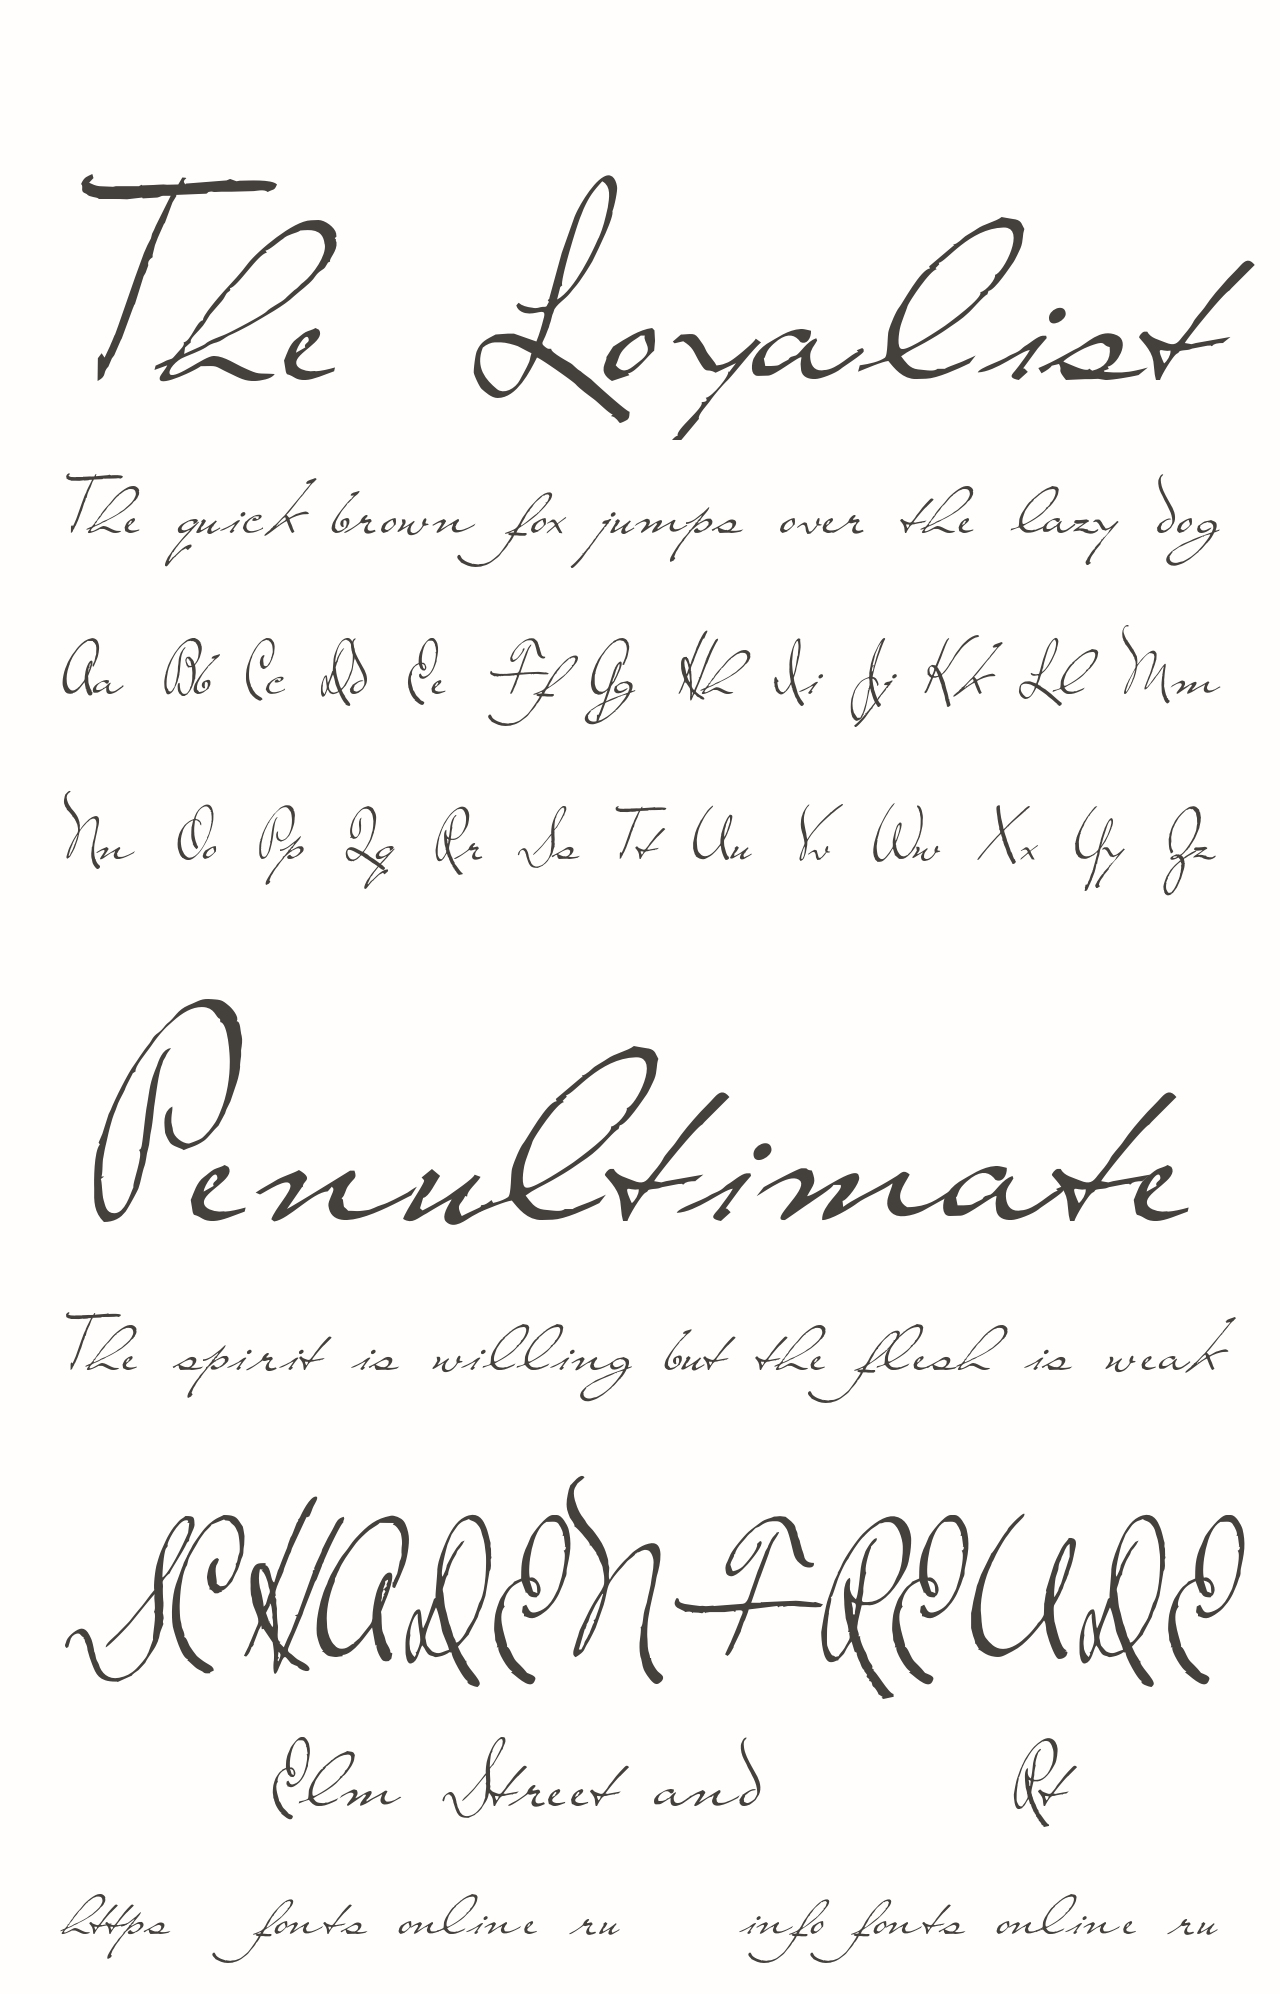 The Loyalist
The quick brown fox jumps over the lazy dog
Aa Bb Cc Dd Ee Ff Gg Hh Ii Jj Kk Ll Mm
Nn Oo Pp Qq Rr Ss Tt Uu Vv Ww Xx Yy Zz
Penultimate
The spirit is willing but the flesh is weak
SCHADENFREUDE
Elm Street and Rt
https fonts online ru info fonts online ru